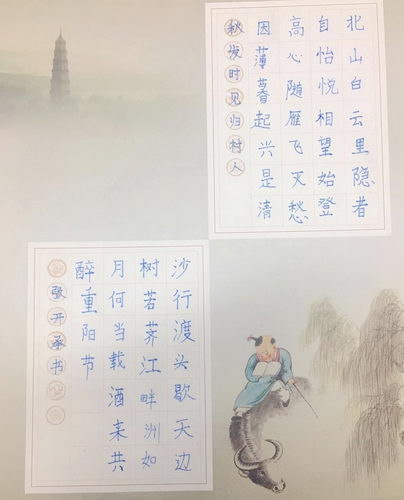 北山白云里隐者
自怡悦相望始登
高心随雁飞灭愁
因薄暮起兴是清
秋发时见归村人
沙行渡头歇天边
树若荠江畔洲如
月何当载酒来共
醉重阳节
张开承书